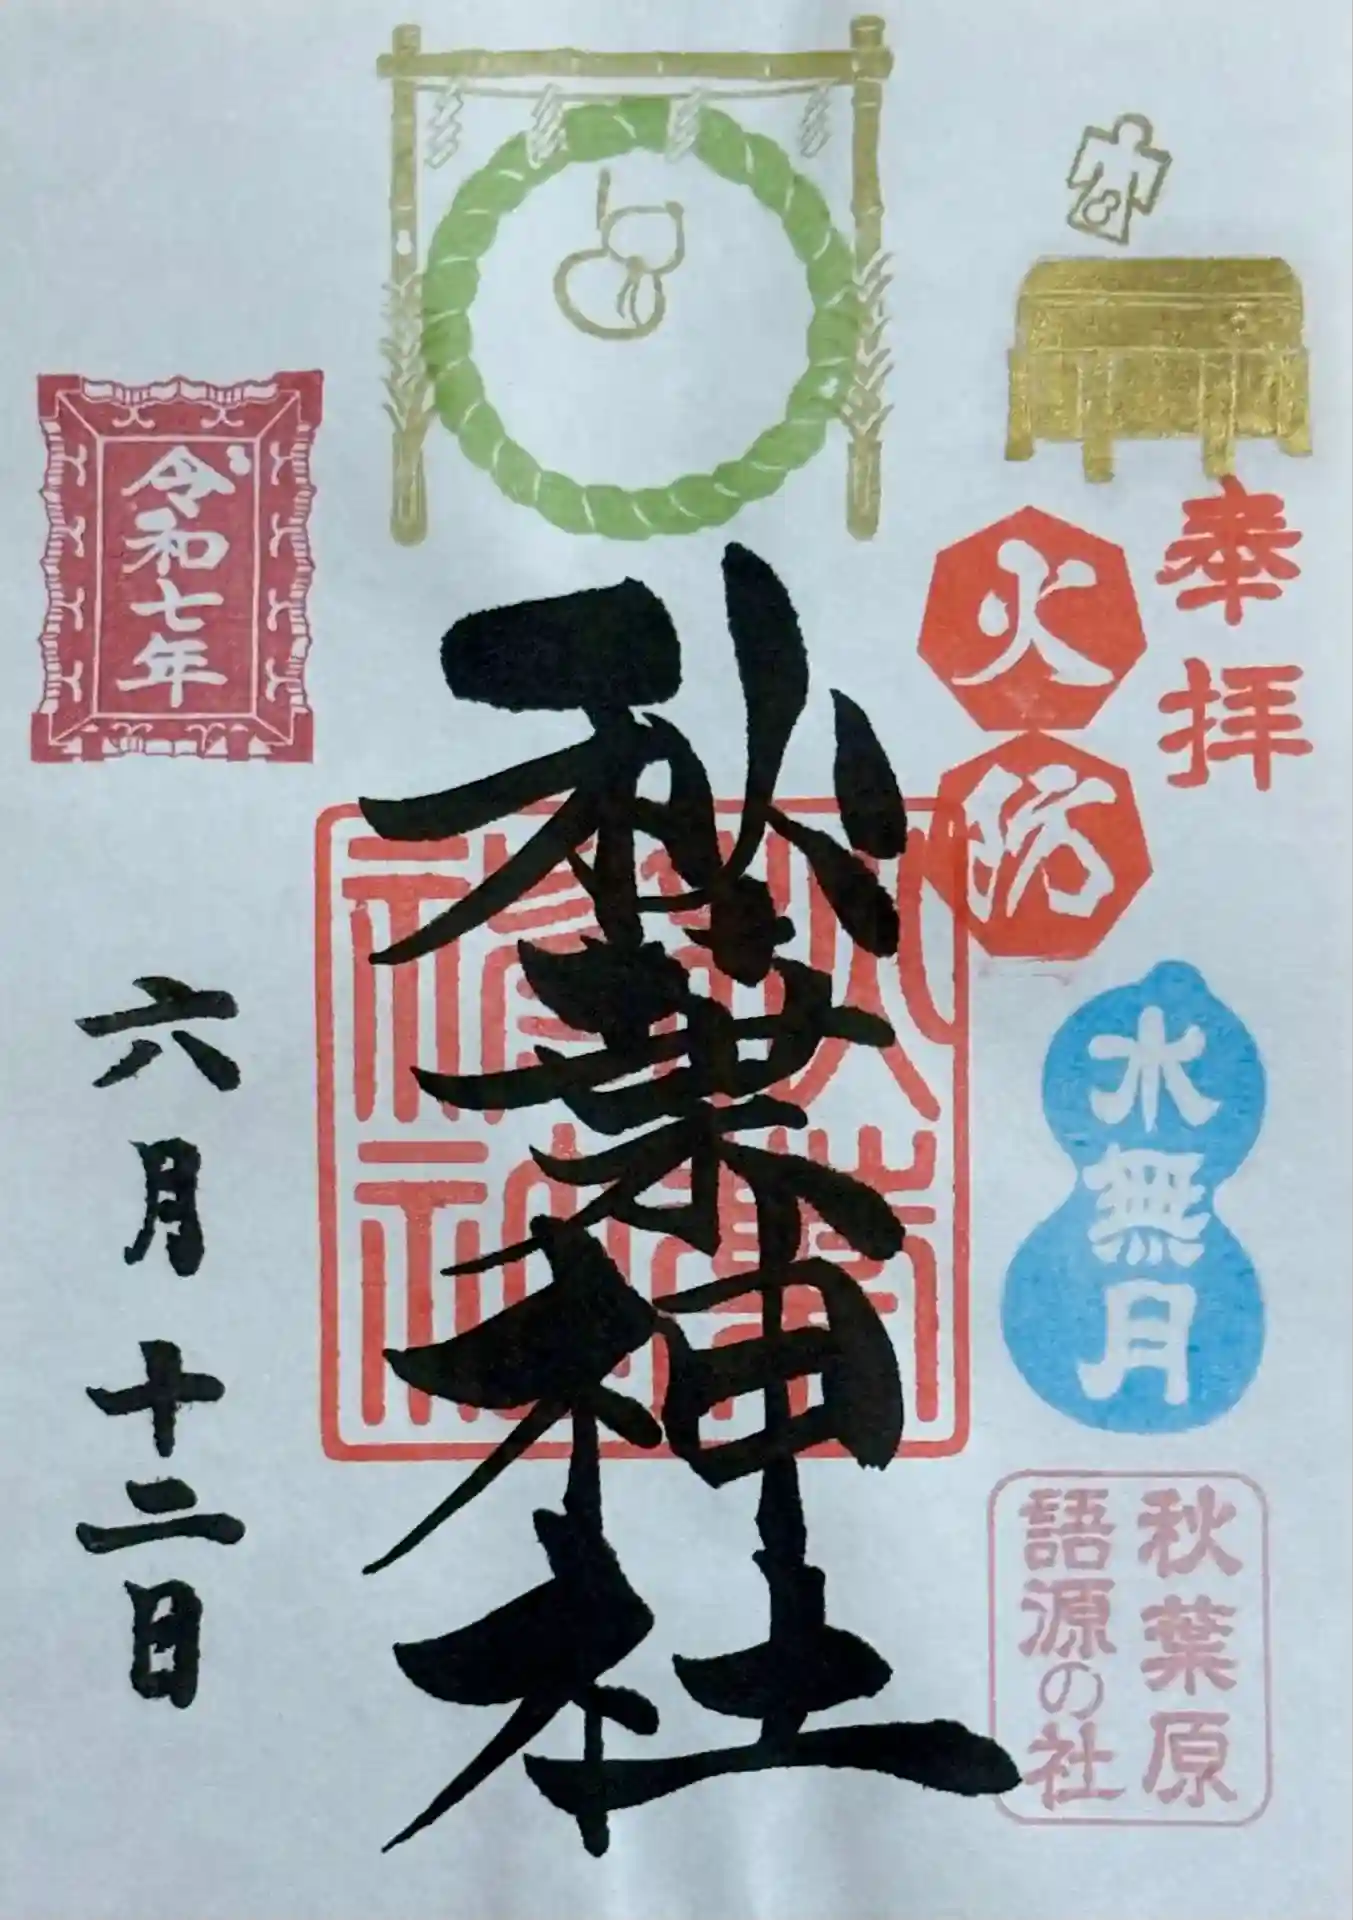 奉拝
火防
水無月
秋葉原
語源の社
秋葉神社
秋葉神社
令和七年
六月十二日